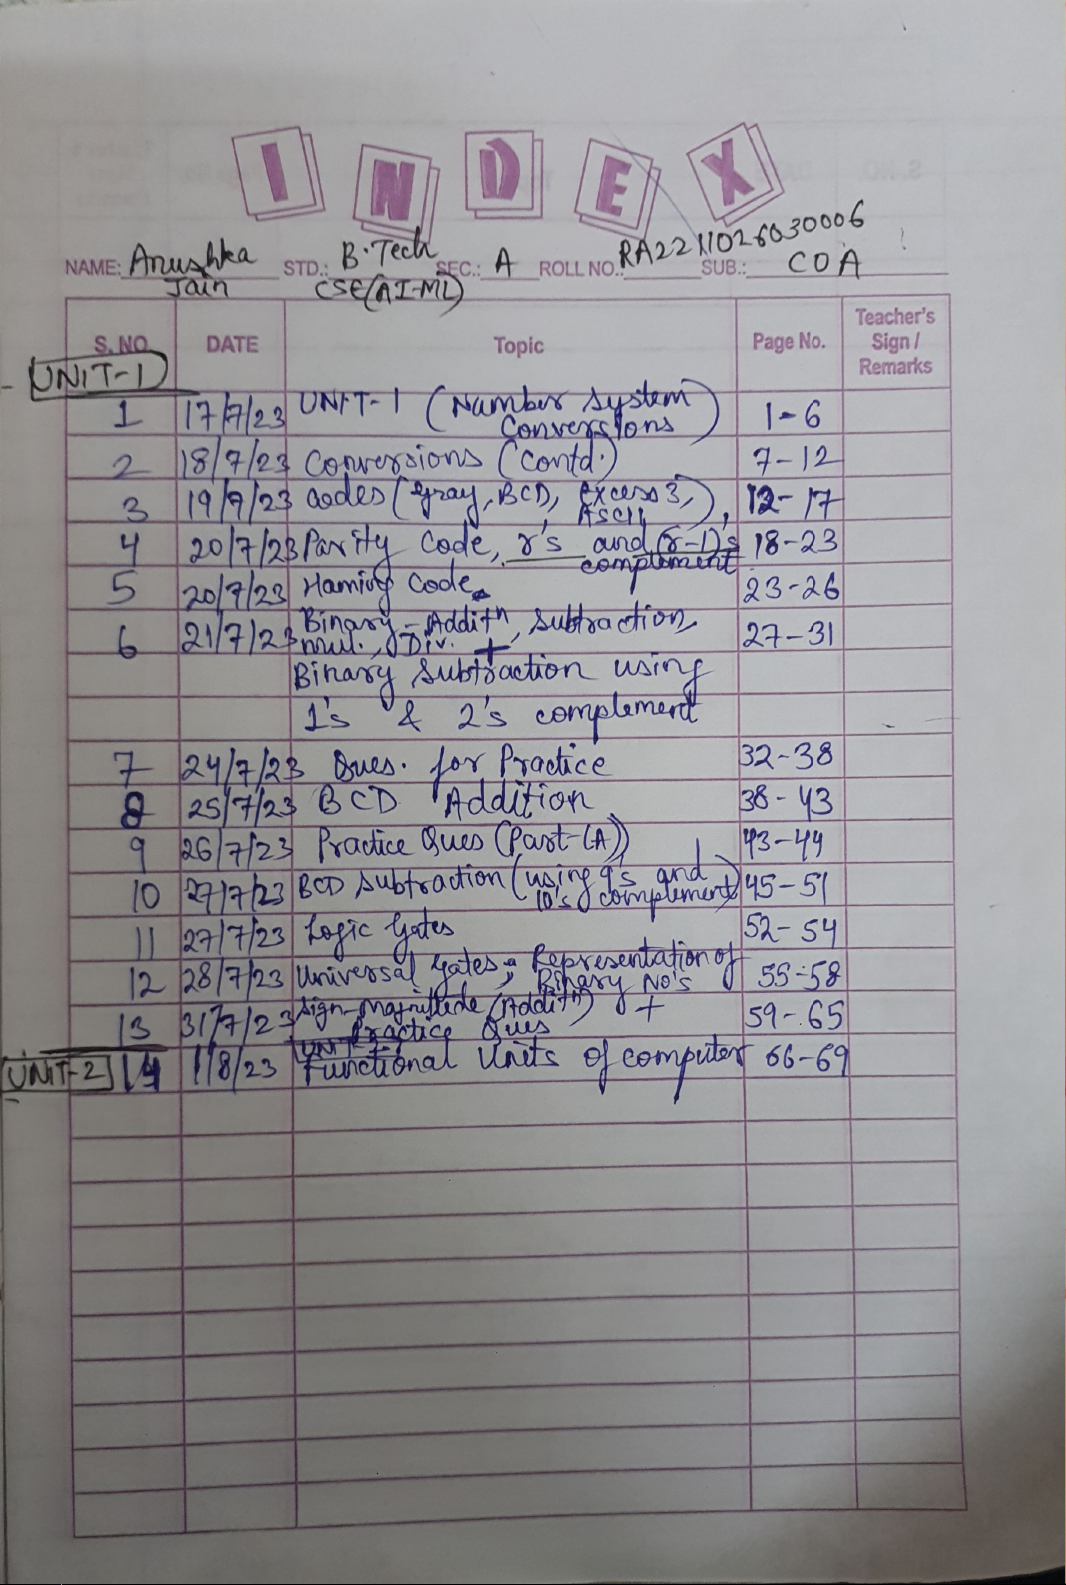 INDEX
NAME: Anushka Jain STD.: B.Tech CSE(AI-ML) SEC.: A ROLL NO.: RA2211026030006 SUB.: COA
S. NO. DATE Topic Page No. Teacher's Sign / Remarks
UNIT-1
1 17/7/23 UNIT-1 (Number System Conversions) 1-6
2 18/7/23 Conversions (Contd.) 7-12
3 19/7/23 Codes (Gray, BCD, Excess 3, ASCII), 12-17
4 20/7/23 Parity Code, r's and (r-1)'s complement 18-23
5 20/7/23 Haming Code 23-26
6 21/7/23 Binary - Additn, Subtraction, Mul., Div. + 27-31
Binary Subtraction using
1's & 2's complement
7 24/7/23 Ques. for Practice 32-38
8 25/7/23 BCD Addition 38-43
9 26/7/23 Practice Ques (Part-(A)) 43-44
10 27/7/23 BCD Subtraction (using 9's and 10's complement) 45-51
11 27/7/23 Logic Gates 52-54
12 28/7/23 Universal Gates, Representation of Binary No's 55-58
13 31/7/23 Sign-Magnitude (Additn) + Practice Ques 59-65
UNIT-2 14 1/8/23 Functional Units of computer 66-69